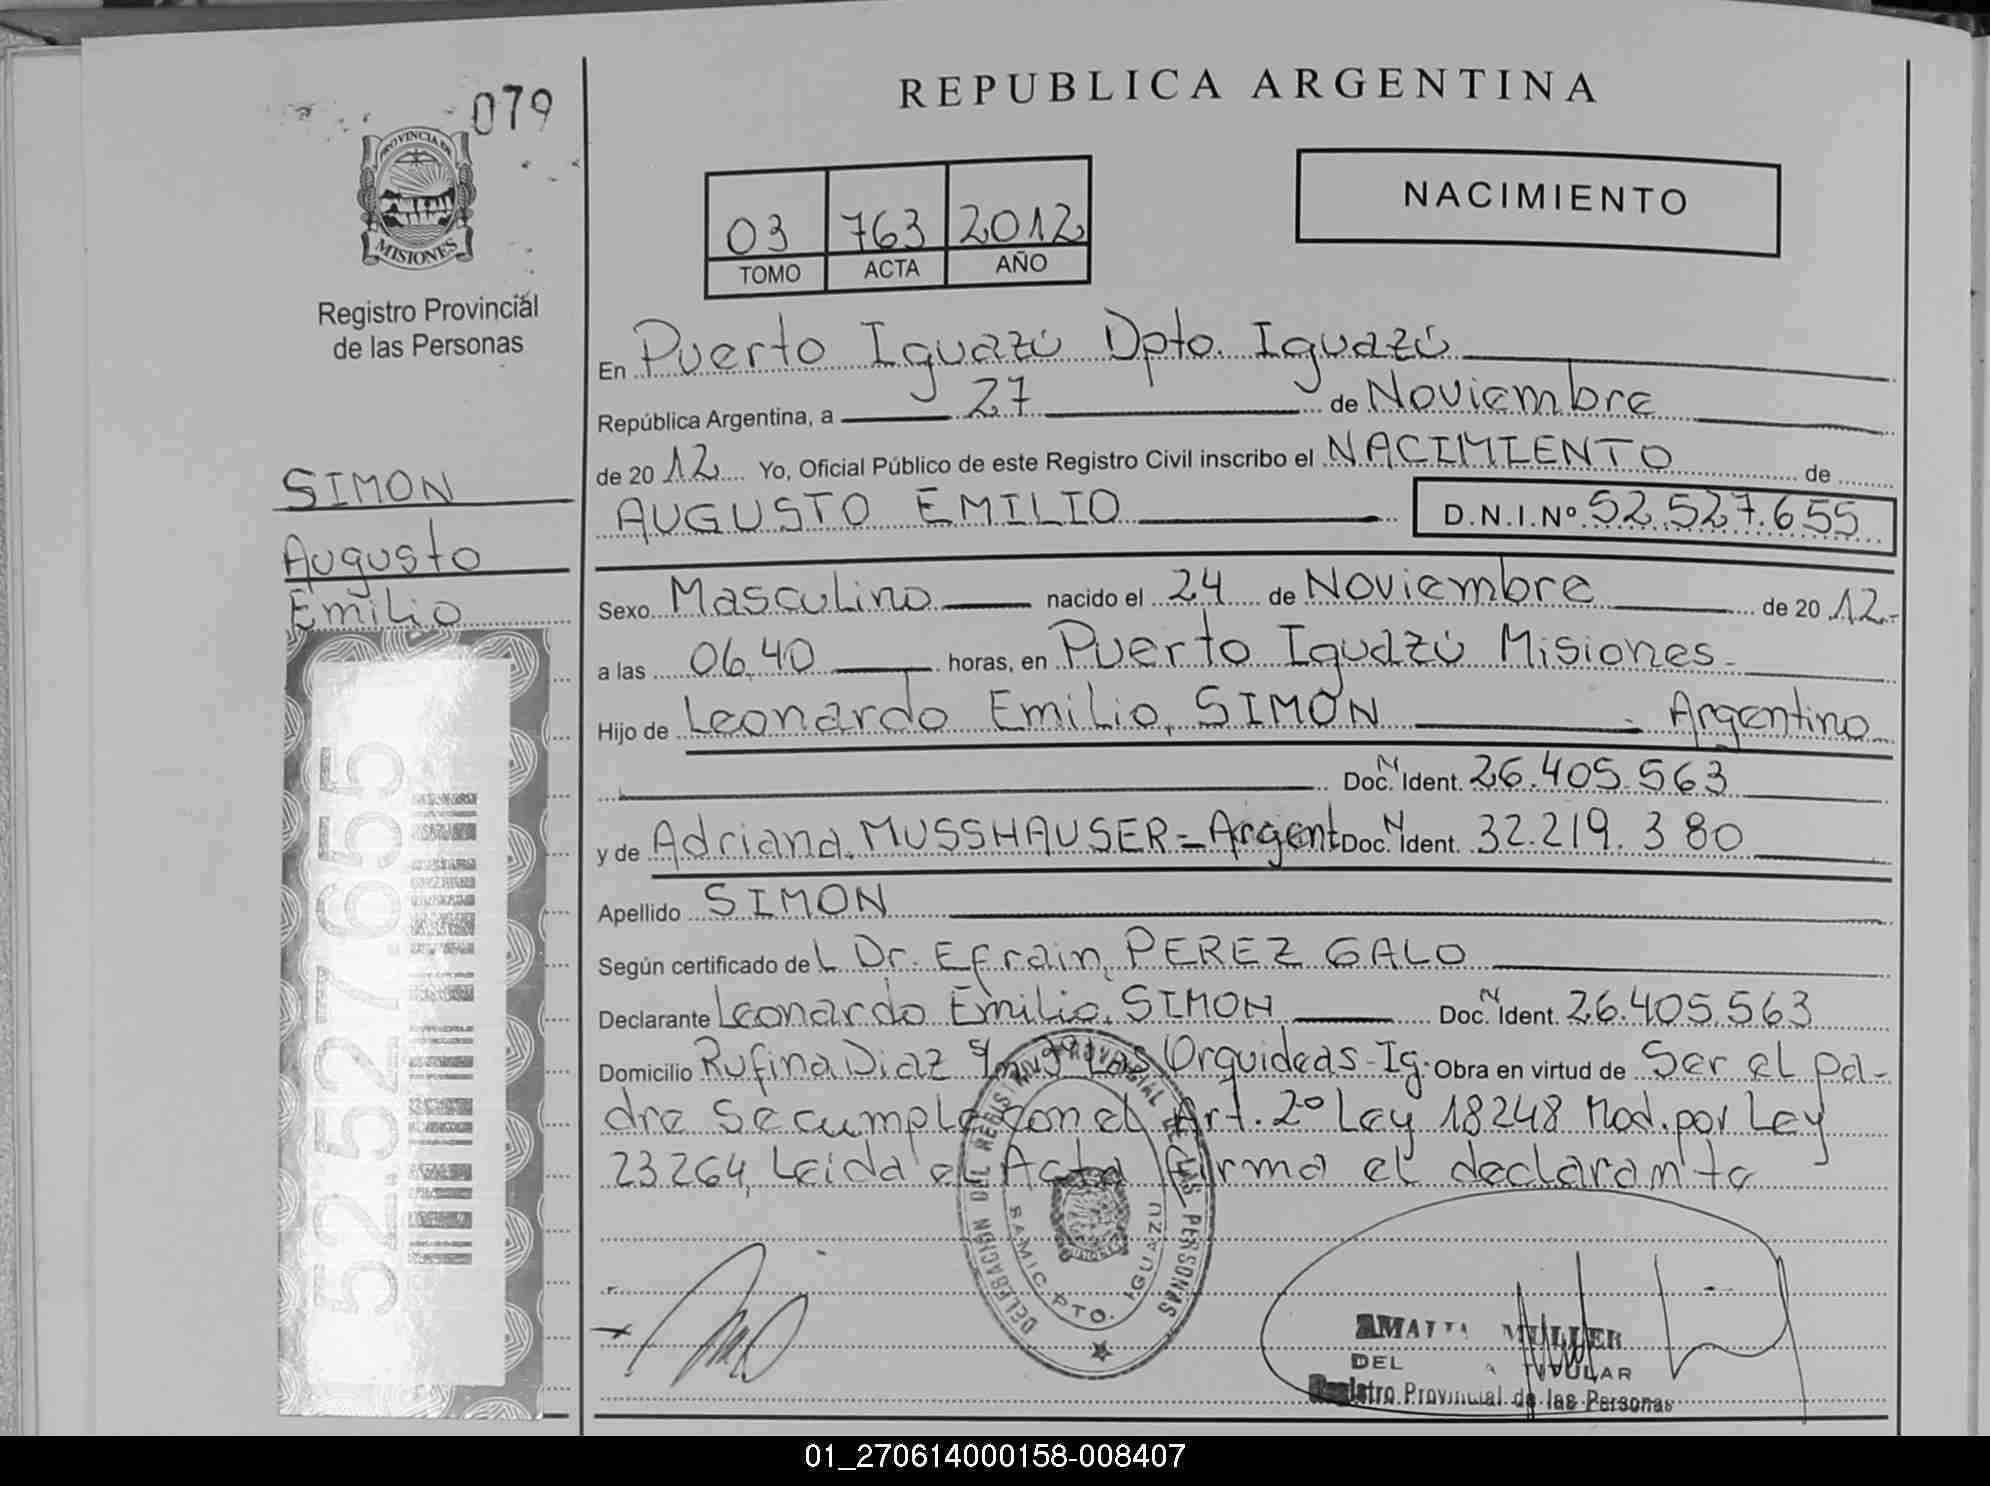 079
PROVINCIA DE
MISIONES
Registro Provincial
de las Personas
SIMON
Augusto
Emilio
52527655
52.527.655
REPUBLICA ARGENTINA
03 763 2012
TOMO ACTA AÑO
NACIMIENTO
En Puerto Iguazú Dpto. Iguazú
República Argentina, a 27 de Noviembre
de 2012 Yo, Oficial Público de este Registro Civil inscribo el NACIMIENTO de
AUGUSTO EMILIO D.N.I.Nº 52.527.655
Sexo Masculino nacido el 24 de Noviembre de 2012.-
a las 06,40 horas, en Puerto Iguazú Misiones.
Hijo de Leonardo Emilio, SIMON - Argentino
Doc. N Ident. 26.405.563
y de Adriana, MUSSHAUSER = Argent Doc. N Ident. 32.219.380
Apellido SIMON
Según certificado del Dr. Efrain, PEREZ GALO
Declarante Leonardo Emilio, SIMON Doc. N Ident. 26.405.563
Domicilio Rufina Diaz s/n Bº Las Orquideas-Ig. Obra en virtud de Ser el pa-
dre Se cumple con el Art. 2º Ley 18248 Mod. por Ley
23264, Leida el Acta firma el declarante
DELEGACION DEL REGISTRO PROVINCIAL DE LAS PERSONAS
SAMIC. PTO. IGUAZU
MULLER
DEL TITULAR
Registro Provincial de las Personas
01_270614000158-008407